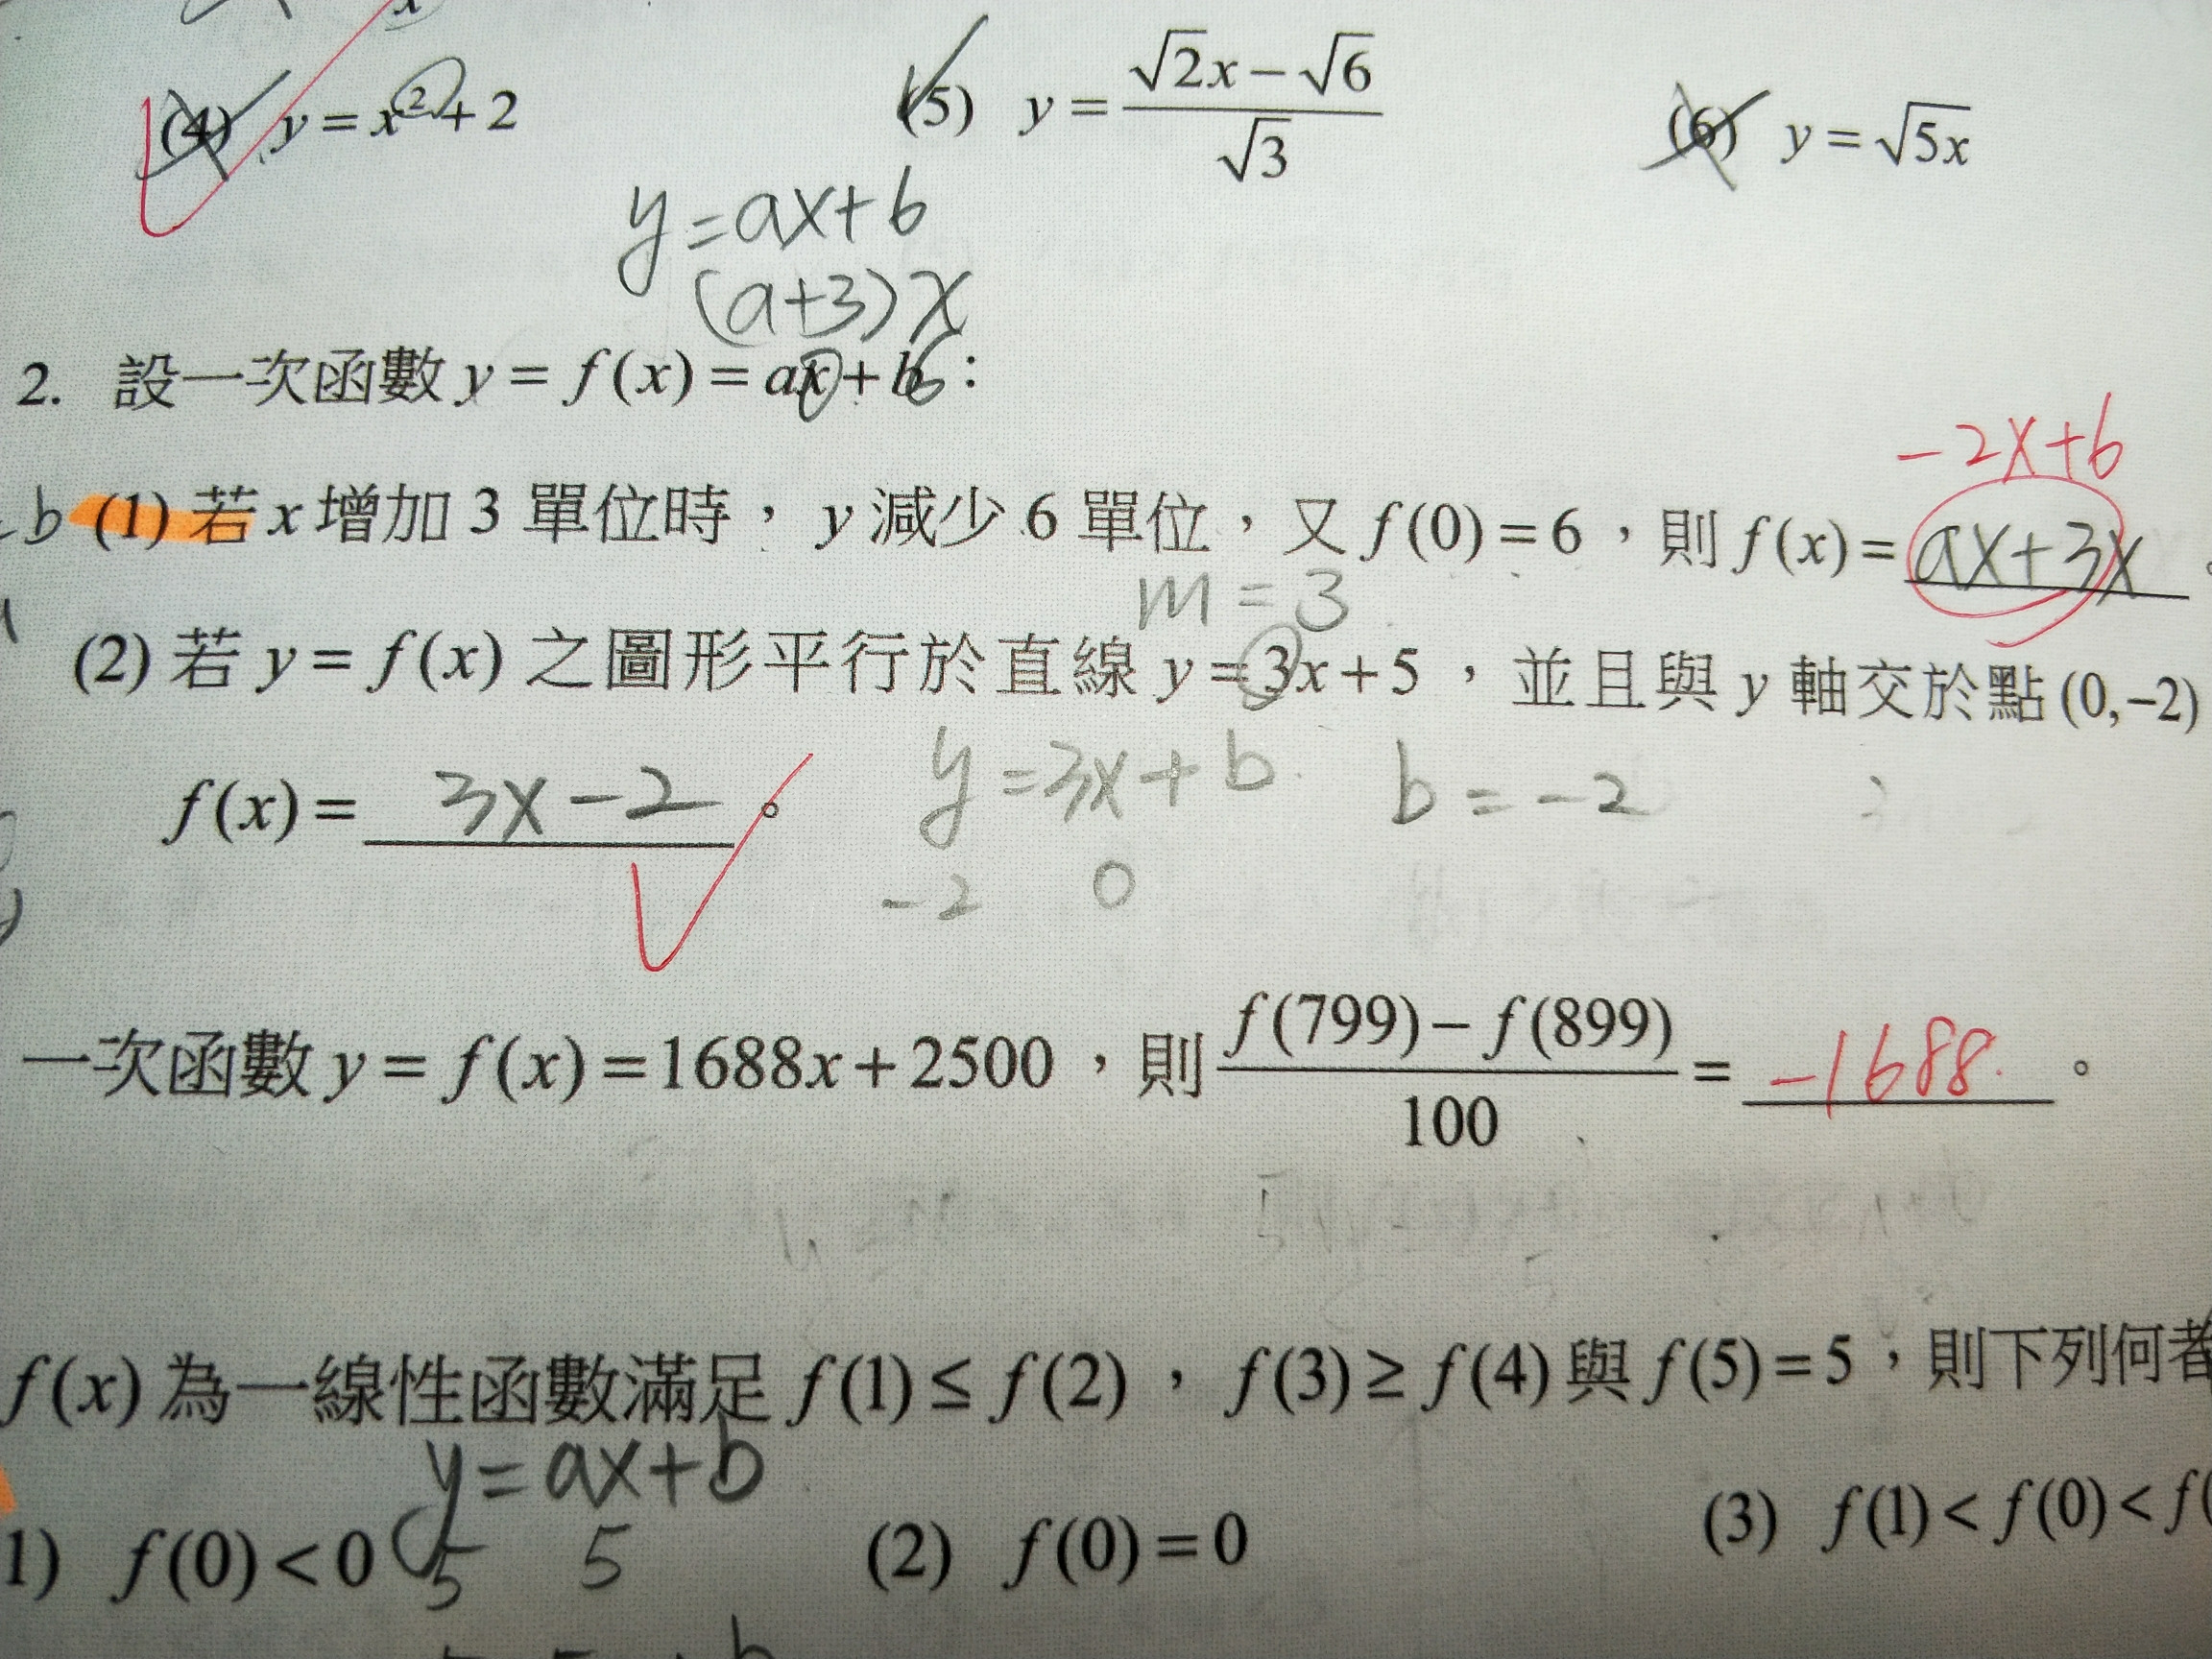 (4) y = x² + 2 (5) y = (√2x − √6)/√3 (6) y = √(5x)
y = ax + b
(a+3)x
2. 設一次函數 y = f(x) = ax + b：
-2x+6
b (1) 若 x 增加 3 單位時， y 減少 6 單位，又 f(0) = 6，則 f(x) = ax+3x 。
m = 3
(2) 若 y = f(x) 之圖形平行於直線 y = 3x + 5 ，並且與 y 軸交於點 (0,−2)
f(x) = 3x − 2 。 y = 3x + b b = −2
−2 0
一次函數 y = f(x) = 1688x + 2500 ，則 (f(799) − f(899))/100 = −1688 。
f(x) 為一線性函數滿足 f(1) ≤ f(2) ， f(3) ≥ f(4) 與 f(5) = 5，則下列何者
y = ax + b
1) f(0) < 0 5 5 (2) f(0) = 0 (3) f(1) < f(0) < f(